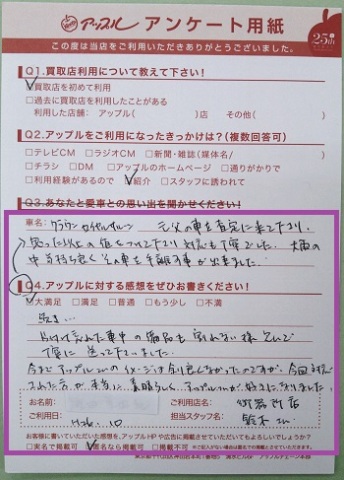 アップル アンケート用紙
25th
この度は当店をご利用いただきありがとうございました。
Q1.買取店利用について教えて下さい!
□買取店を初めて利用
□過去に買取店を利用したことがある
利用した店舗: アップル( )店 その他( )
Q2.アップルをご利用になったきっかけは?(複数回答可)
□テレビCM □ラジオCM □新聞・雑誌(媒体名/ )
□チラシ □DM □アップルのホームページ □通りがかりで
□利用経験があるので □紹介 □スタッフに誘われて
Q3.あなたと愛車との思い出を聞かせください!
車名: クラウン ロイヤルサルーン 元父の車を査定に来て下さり、
思った以上の値をつけて下さり 対応も丁寧でした。大雨の
中 気持ち良く その車を手離す事が出来ました。
Q4.アップルに対する感想をぜひお書きください!
□大満足 □満足 □普通 □もう少し □不満
忘れた車中の備品も
丁寧に送って下さいました。
今まで アップルさんのイメージは余り良くなかったのですが、今回対応
された方が 本当に 素晴らしく、アップルさんが 好きになりました。
お名前:
ご利用店名:
ご利用日: H26. 10
担当スタッフ名: 鈴木 さん
お客様に書いていただいた感想を、アップルHPや広告に掲載させていただいてもよろしいでしょうか?
□実名で掲載可 □匿名なら掲載可 □掲載不可